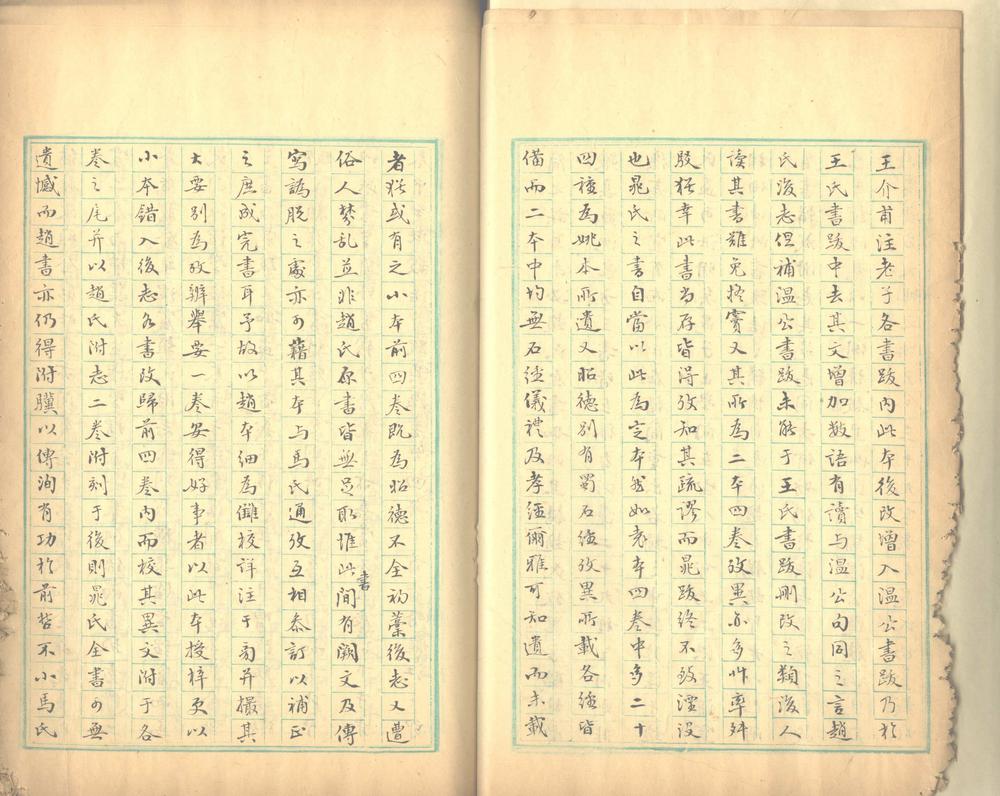 王介甫注老子各書跋內此本後改增入溫公書跋乃於
王氏書跋中去其文增加數語有讀與溫公句同之言趙
氏後志但補溫公書跋未能于王氏書跋刪改之賴後人
讀其書雖免掩實又其所為二本四卷攷異亦多艸率舛
脫猶幸此書尚存皆得攷知其疏謬而晁跋終不致湮沒
也晁氏之書自當以此為定本然如袁本四卷中多二十
四種為姚本所遺又昭德別有蜀石經攷異所載各經皆
備而二本中均無石經儀禮及孝經爾雅可知遺而未載
者猶或有之小本前四卷既為昭德不全初藁後志又遭
俗人棼乱並非趙氏原書皆無足取惟此書間有闕文及傳
寫譌脫之處亦可藉其本与馬氏通攷互相叅訂以補正
之庶成完書耳予故以趙本細為讎校詳注于旁并撮其
大要別為攷辨舉要一卷安得好事者以此本授梓更以
小本錯入後志各書改歸前四卷內而校其異文附于各
卷之尾并以趙氏附志二卷附刻于後則晁氏全書可無
遺憾而趙書亦仍得附驥以傳洵有功於前哲不小馬氏